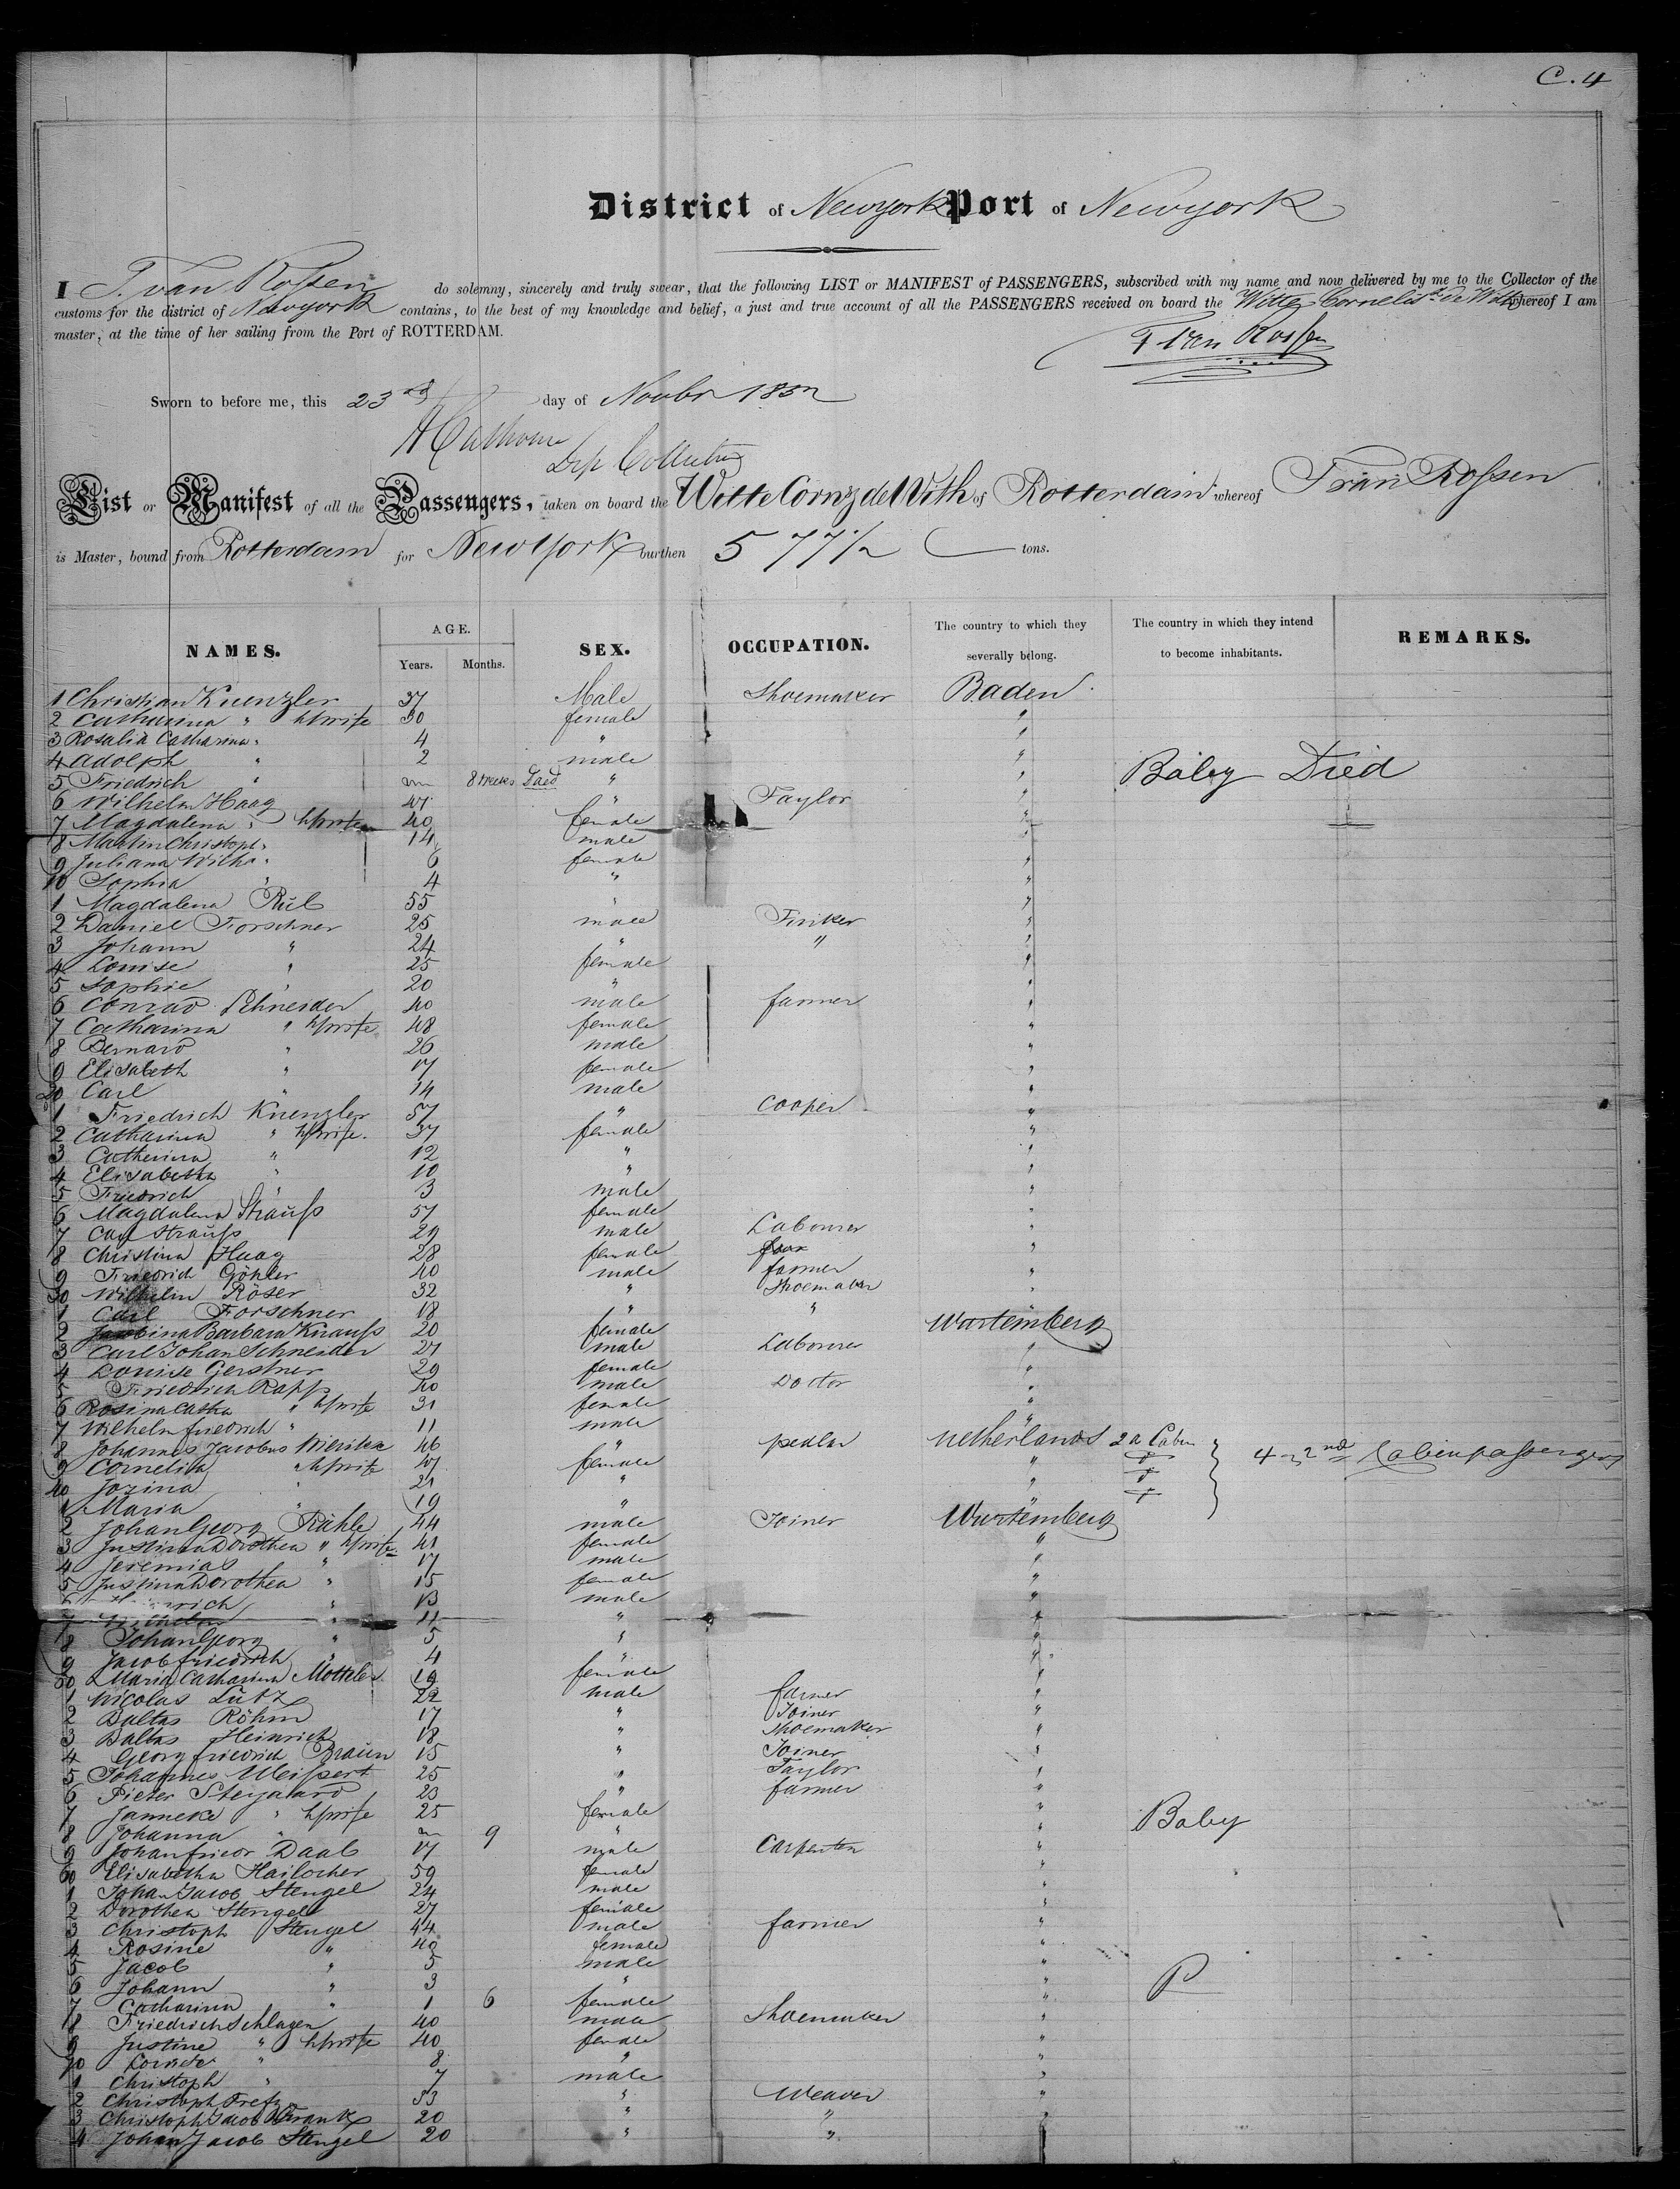 C. 4
District of Newyork Port of Newyork
I T. van Rossen do solemny, sincerely and truly swear, that the following LIST or MANIFEST of PASSENGERS, subscribed with my name and now delivered by me to the Collector of the
customs for the district of Newyork contains, to the best of my knowledge and belief, a just and true account of all the PASSENGERS received on board the Witte Cornelisz de With whereof I am
master, at the time of her sailing from the Port of ROTTERDAM.
T van Rossen
Sworn to before me, this 23rd day of Novbr 1852
Dep Collector
List or Manifest of all the Passengers, taken on board the Witte Cornz de With of Rotterdam whereof T van Rossen
is Master, bound from Rotterdam for New York burthen 577 1/2 tons.
NAMES. AGE. Years. Months. SEX. OCCUPATION. The country to which they severally belong. The country in which they intend to become inhabitants. REMARKS.
1 Christian Kuenzler 37 Male Shoemaker Baden
2 Catharina " hswife 30 female "
3 Rosalia Catharina " 4 " "
4 Adolph " 2 male "
5 Friedrich " 8 weeks Died " " Baby Died
6 Wilhelm Haag 47 " Taylor "
7 Magdalena " hswife 40 female "
8 Martin Christoph " 14 male "
9 Juliana Wilha " 6 female "
10 Sophia " 4 " "
1 Magdalena Rül 55 " "
2 Daniel Forschner 25 male "
3 Johann " 24 " " "
4 Louise " 25 female "
5 Sophie " 20 " "
6 Conrad Schneider 40 male farmer "
7 Catharina " hswife 48 female "
8 Bernard " 26 male "
9 Elisabeth " 17 female "
20 Carl " 14 male "
1 Friedrich Kuenzler 57 " Cooper "
2 Catharina " hswife 37 female "
3 Catherina " 12 " "
4 Elisabetha " 10 " "
5 Friedrich " 3 male "
6 Magdalena Strauss 57 female "
7 Carl Strauss 29 male Labourer "
8 Christina Haag 28 female "
9 Friedrich Göhler 40 male farmer "
30 Wilhelm Röser 32 " Shoemaker "
1 Carl Forschner 18 " "
2 Jacobina Barbara Knauss 20 female Wurtemberg
3 Carl Johan Schneider 27 male Labourer "
4 Louise Gerstner 29 female "
5 Friedrich Rapp 40 male Doctor "
6 Rosina Catha " hswife 31 female "
7 Wilhelm friedrich " 11 male "
8 Johannes Jacobus 46 " pedlar Netherlands 2d Cabin 4 - 2nd Cabienpassengers
9 Cornelia " hswife 47 female "
40 Jozina " 21 " "
1 Maria " 19 " "
2 Johan Georg Rühle 44 male Joiner Wurtemberg
3 Justina Dorothea " hswife 41 female "
4 Jeremias " 17 male "
5 Justina Dorothea " 15 female "
6 Heinrich " 13 male "
7 Wilhelm " 11 " "
8 Johan Georg " 5 " "
9 Jacob friedrich " 4 " "
50 Maria Catharina 19 female "
1 Nicolas Lutz 22 male farmer "
2 Baltas Röhm 17 " Joiner "
3 Baltas Heinrich 18 " Shoemaker "
4 Georg friedrich Braun 15 " Joiner "
5 Johannes Weissert 25 " Taylor "
6 Pieter Steyaard 23 " farmer "
7 Janneke " hswife 25 female "
8 Johanna " 9 " " Baby
9 Johan friedr Daab 17 male Carpenter "
60 Elisabetha Hailocher 59 female "
1 Johan Jacob Stengel 24 male "
2 Dorothea Stengel 27 female "
3 Christoph Stengel 44 male farmer "
4 Rosine " 40 female "
5 Jacob " 5 male "
6 Johann " 3 " "
7 Catharina " 1 6 female "
8 Friedrich Schlagen 40 male Shoemaker "
9 Justine " hswife 40 female "
70 " 8 " "
1 Christoph " 7 male "
2 Christoph Fretz 53 " Weaver "
3 Christoph Jacob Frank 20 " " "
4 Johan Jacob Stengel 20 " "